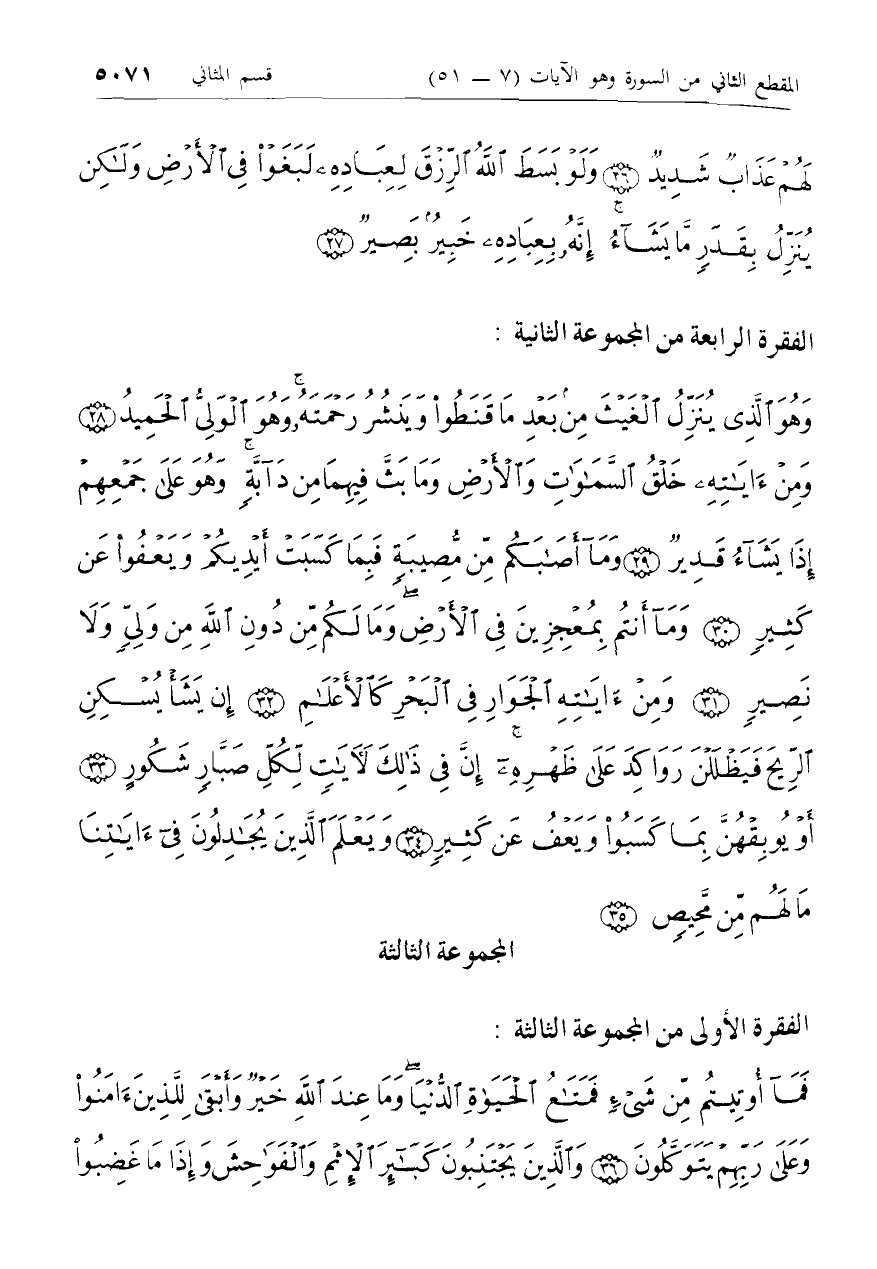 المقطع الثاني من السورة وهو الآيات (٧ – ٥١) قسم المثاني ٥٠٧١
لَهُمْ عَذَابٌ شَدِيدٌ ﴿٢٦﴾ وَلَوْ بَسَطَ ٱللَّهُ ٱلرِّزْقَ لِعِبَادِهِۦ لَبَغَوْا۟ فِى ٱلْأَرْضِ وَلَـٰكِن
يُنَزِّلُ بِقَدَرٍ مَّا يَشَآءُ ۚ إِنَّهُۥ بِعِبَادِهِۦ خَبِيرٌۢ بَصِيرٌ ﴿٢٧﴾
الفقرة الرابعة من المجموعة الثانية :
وَهُوَ ٱلَّذِى يُنَزِّلُ ٱلْغَيْثَ مِنۢ بَعْدِ مَا قَنَطُوا۟ وَيَنشُرُ رَحْمَتَهُۥ ۚ وَهُوَ ٱلْوَلِىُّ ٱلْحَمِيدُ ﴿٢٨﴾
وَمِنْ ءَايَـٰتِهِۦ خَلْقُ ٱلسَّمَـٰوَٰتِ وَٱلْأَرْضِ وَمَا بَثَّ فِيهِمَا مِن دَآبَّةٍ ۚ وَهُوَ عَلَىٰ جَمْعِهِمْ
إِذَا يَشَآءُ قَدِيرٌ ﴿٢٩﴾ وَمَآ أَصَـٰبَكُم مِّن مُّصِيبَةٍ فَبِمَا كَسَبَتْ أَيْدِيكُمْ وَيَعْفُوا۟ عَن
كَثِيرٍ ﴿٣٠﴾ وَمَآ أَنتُم بِمُعْجِزِينَ فِى ٱلْأَرْضِ ۖ وَمَا لَكُم مِّن دُونِ ٱللَّهِ مِن وَلِىٍّ وَلَا
نَصِيرٍ ﴿٣١﴾ وَمِنْ ءَايَـٰتِهِ ٱلْجَوَارِ فِى ٱلْبَحْرِ كَٱلْأَعْلَـٰمِ ﴿٣٢﴾ إِن يَشَأْ يُسْكِنِ
ٱلرِّيحَ فَيَظْلَلْنَ رَوَاكِدَ عَلَىٰ ظَهْرِهِۦٓ ۚ إِنَّ فِى ذَٰلِكَ لَـَٔايَـٰتٍ لِّكُلِّ صَبَّارٍ شَكُورٍ ﴿٣٣﴾
أَوْ يُوبِقْهُنَّ بِمَا كَسَبُوا۟ وَيَعْفُ عَن كَثِيرٍ ﴿٣٤﴾ وَيَعْلَمَ ٱلَّذِينَ يُجَـٰدِلُونَ فِىٓ ءَايَـٰتِنَا
مَا لَهُم مِّن مَّحِيصٍ ﴿٣٥﴾
المجموعة الثالثة
الفقرة الأولى من المجموعة الثالثة :
فَمَآ أُوتِيتُم مِّن شَىْءٍ فَمَتَـٰعُ ٱلْحَيَوٰةِ ٱلدُّنْيَا ۖ وَمَا عِندَ ٱللَّهِ خَيْرٌ وَأَبْقَىٰ لِلَّذِينَ ءَامَنُوا۟
وَعَلَىٰ رَبِّهِمْ يَتَوَكَّلُونَ ﴿٣٦﴾ وَٱلَّذِينَ يَجْتَنِبُونَ كَبَـٰٓئِرَ ٱلْإِثْمِ وَٱلْفَوَٰحِشَ وَإِذَا مَا غَضِبُوا۟